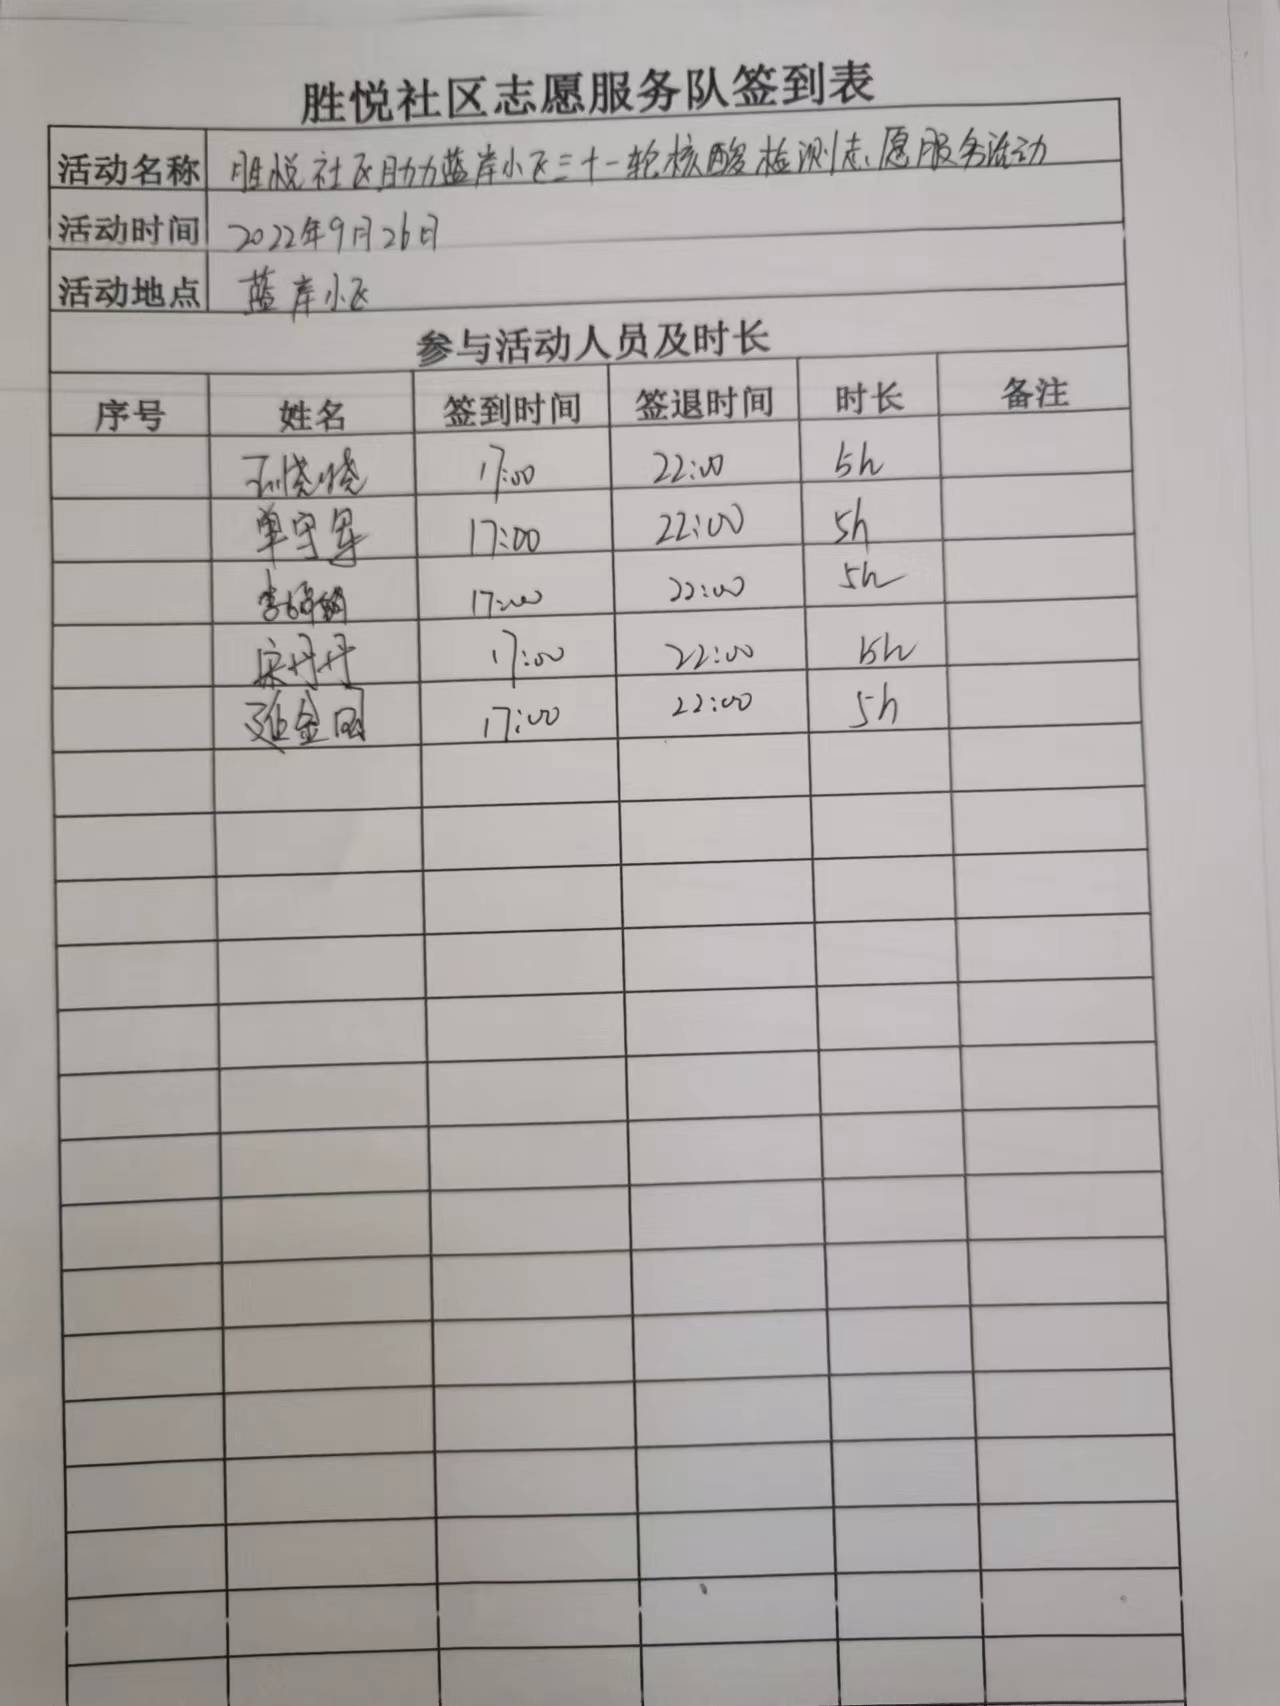 胜悦社区志愿服务队签到表
活动名称 胜悦社区助力蓝岸小区三十一轮核酸检测志愿服务活动
活动时间 2022年9月26日
活动地点 蓝岸小区
参与活动人员及时长
序号 姓名 签到时间 签退时间 时长 备注
17:00 22:00 5h
单守军 17:00 22:00 5h
17:00 22:00 5h
宋丹丹 17:00 22:00 5h
17:00 22:00 5h